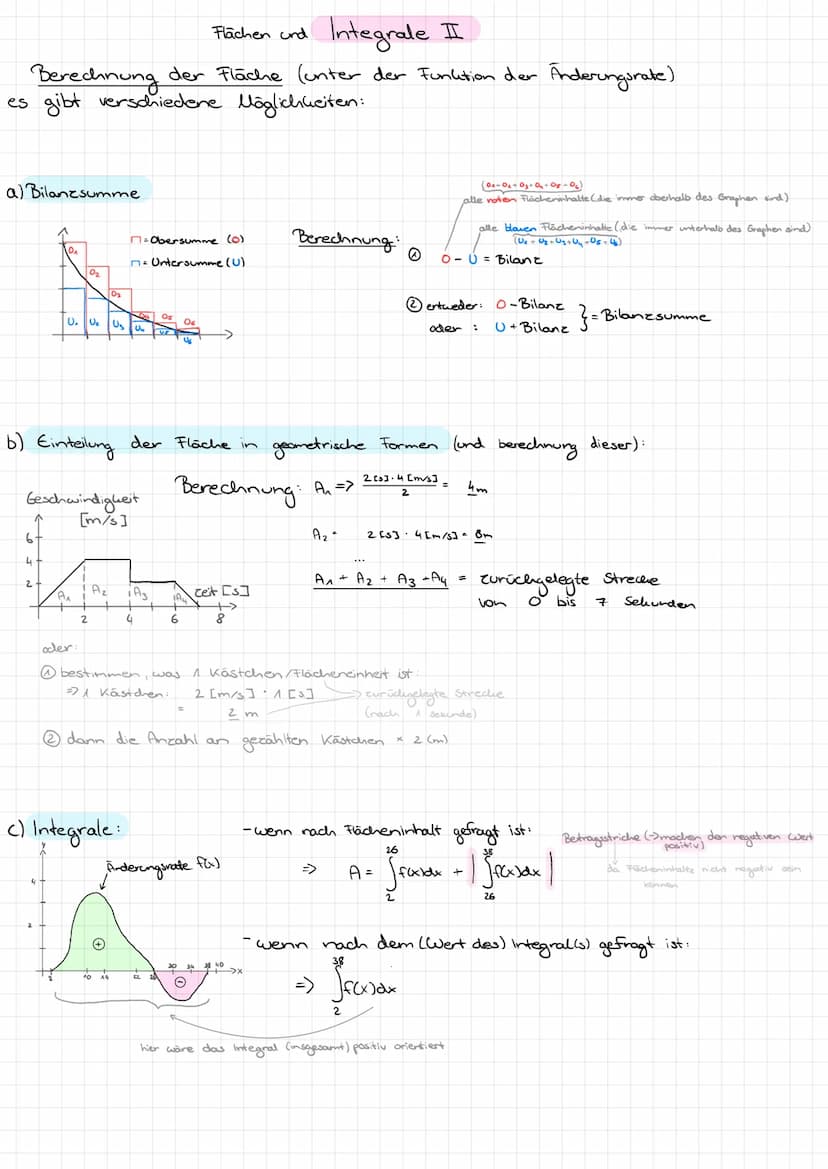 Flächen und Integrale II
Berechnung der Fläche (unter der Funktion der Änderungsrate)
es gibt verschiedene Möglichkeiten:
a) Bilanzsumme
O₁ O₂ O₃ O₅ O₆
U₁ U₂ U₃ U₄ U₅ U₆
= Obersumme (O)
= Untersumme (U)
Berechnung:
alle roten Flächeninhalte (die immer oberhalb des Graphen sind)
alle blauen Flächeninhalte (die immer unterhalb des Graphen sind)
① O - U = Bilanz
② entweder: O - Bilanz
oder : U + Bilanz
} = Bilanzsumme
b) Einteilung der Fläche in geometrische Formen (und berechnung dieser):
Geschwindigkeit
[m/s]
6
4
2
A₁ A₂ A₃ A₄ Zeit [s]
2 4 6 8
Berechnung: A₁ => 2[s] · 4[m/s] / 2 = 4m
A₂ = 2[s] · 4[m/s] = 8m
...
A₁ + A₂ + A₃ + A₄ = zurückgelegte Strecke
von 0 bis 7 Sekunden
oder:
① bestimmen, was 1 Kästchen/Flächeneinheit ist:
=> 1 Kästchen: 2 [m/s] · 1 [s] => zurückgelegte Strecke
= 2 m (nach 1 sekunde)
② dann die Anzahl an gezählten Kästchen × 2 (m)
c) Integrale:
Änderungsrate f(x)
y
4
2
+
−
2 10 14 22 26 30 34 38 40 x
-wenn nach Flächeninhalt gefragt ist:
=> A = ∫₂²⁶ f(x)dx + | ∫₂₆³⁸ f(x)dx |
Betragsstriche (->machen den negativen Wert
positiv)
da Flächeninhalte nicht negativ sein
können
- wenn nach dem (Wert des) Integral(s) gefragt ist:
=> ∫₂³⁸ f(x)dx
hier wäre das Integral (insgesamt) positiv orientiert